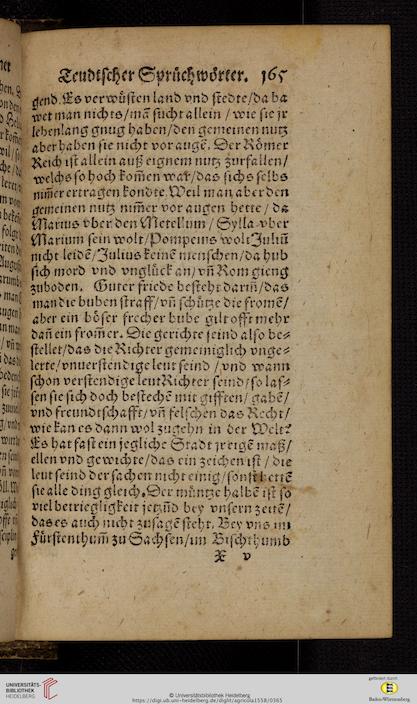 Teudtscher Sprüchwörter. 165
gend. Es verwüsten land vnd stedte/da ba
wet man nichts/mã sucht allein / wie sie jr
lebenlang gnug haben/den gemeinen nutz
aber haben sie nicht vor augẽ. Der Römer
Reich ist allein auß eignem nutz zurfallen/
welchs so hoch kom̃en war/das sichs selbs
nim̃er ertragen kondte. Weil man aber den
gemeinen nutz nim̃er vor augen hette / da
Marius vber den Metellum / Sylla vber
Marium sein wolt/Pompeius wolt Juliũ
nicht leidẽ/Julius keinẽ menschen/da hub
sich mord vnd vnglück an/vñ Rom gieng
zuboden. Guter friede besteht dariñ/das
man die buben straff/vñ schütze die fromẽ/
aber ein böser frecher bube gilt offt mehr
dañ ein from̃er. Die gerichte seind also be=
stellet/das die Richter gemeiniglich vnge=
lerte/vnuerstendige leut seind / vnd wann
schon verstendige leut Richter seind/so las=
sen sie sich doch bestechẽ mit gifften/ gabẽ/
vnd freundtschafft/vñ felschen das Recht/
wie kan es dann wol zugehn in der Welt?
Es hat fast ein jegliche Stadt jr eigẽ maß/
ellen vnd gewichte/das ein zeichen ist / die
leut seind der sachen nicht einig/sonst hettẽ
sie alle ding gleich. Der müntze halbẽ ist so
viel betriegligkeit jetzũd bey vnsern zeitẽ/
das es auch nicht zusagẽ steht. Bey vns im
Fürstenthum̃ zu Sachsen/im Bischthumb
X v
UNIVERSITÄTS-
BIBLIOTHEK
HEIDELBERG
© Universitätsbibliothek Heidelberg
https://digi.ub.uni-heidelberg.de/diglit/agricola1558/0365
gefördert durch
Baden-Württemberg